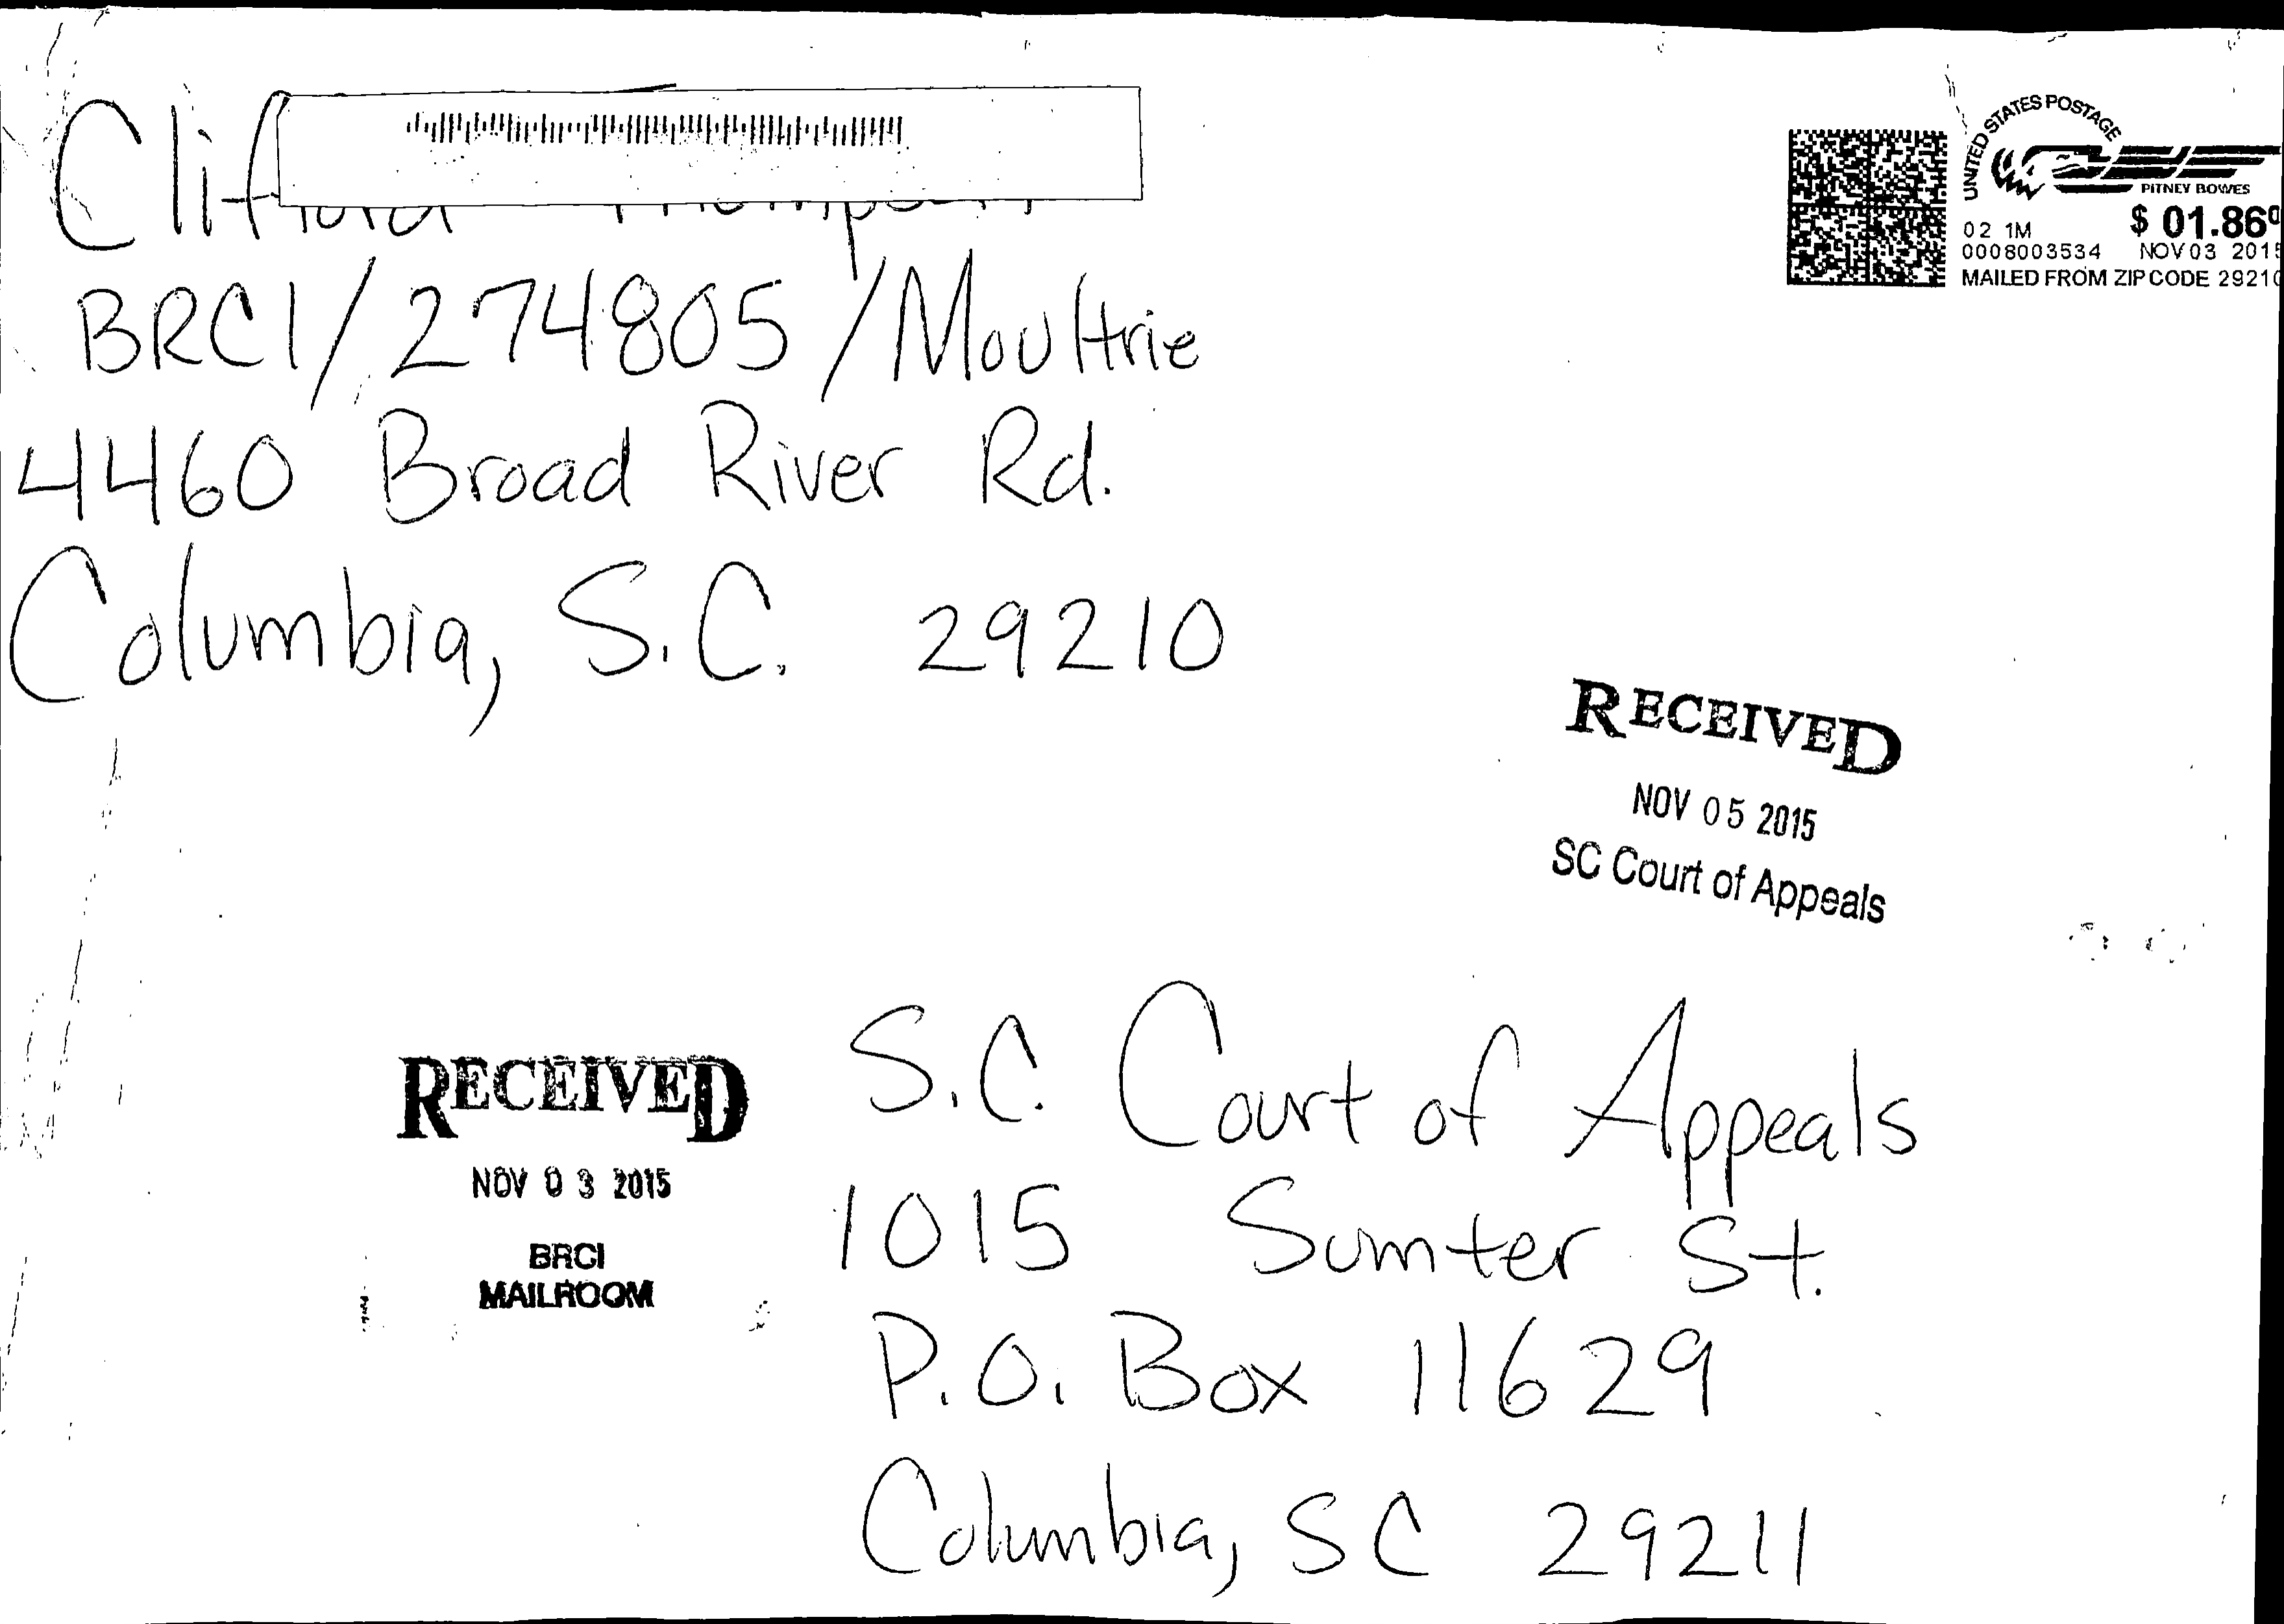 BRCI/274805/Moultrie
4460 Broad River Rd.
Columbia, S.C. 29210
UNITED STATES POSTAGE
PITNEY BOWES
02 1M $ 01.86⁰
0008003534 NOV 03 2015
MAILED FROM ZIP CODE 29210
RECEIVED
NOV 05 2015
SC Court of Appeals
RECEIVED
NOV 03 2015
BRCI
MAILROOM
S.C. Court of Appeals
1015 Sumter St.
P.O. Box 11629
Columbia, SC 29211